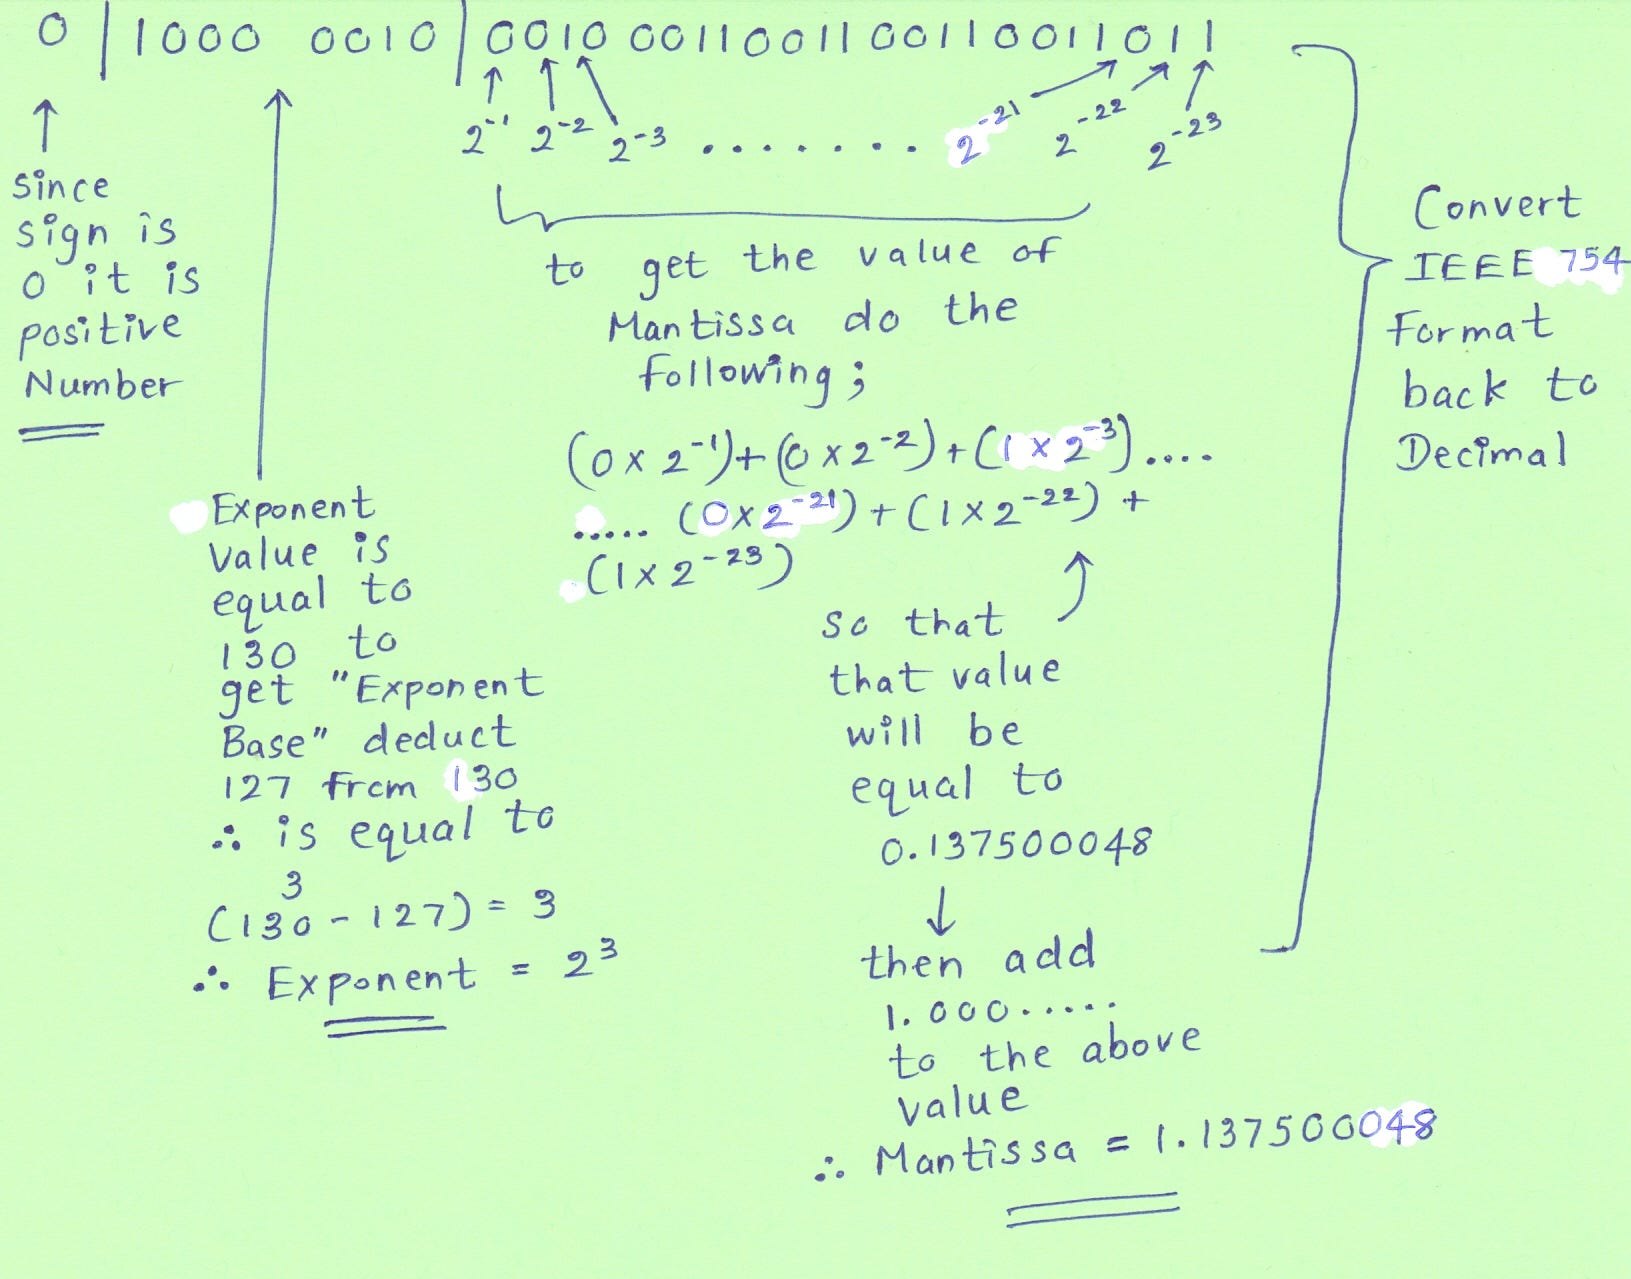 0 | 1000 0010 | 0010 0011 0011 0011 0011 011
2⁻¹ 2⁻² 2⁻³ ........ 2⁻²¹ 2⁻²² 2⁻²³
Since
sign is
0 it is
positive
Number
to get the value of
Mantissa do the
following;
(0 x 2⁻¹)+(0 x 2⁻²)+(1 x 2⁻³)....
..... (0x2⁻²¹)+(1x2⁻²²) +
(1x2⁻²³)
Exponent
value is
equal to
130 to
get "Exponent
Base" deduct
127 from 130
∴ is equal to
3
(130 - 127) = 3
∴ Exponent = 2³
so that
that value
will be
equal to
0.137500048
then add
1.000.....
to the above
value
∴ Mantissa = 1.137500048
Convert
IEEE 754
Format
back to
Decimal